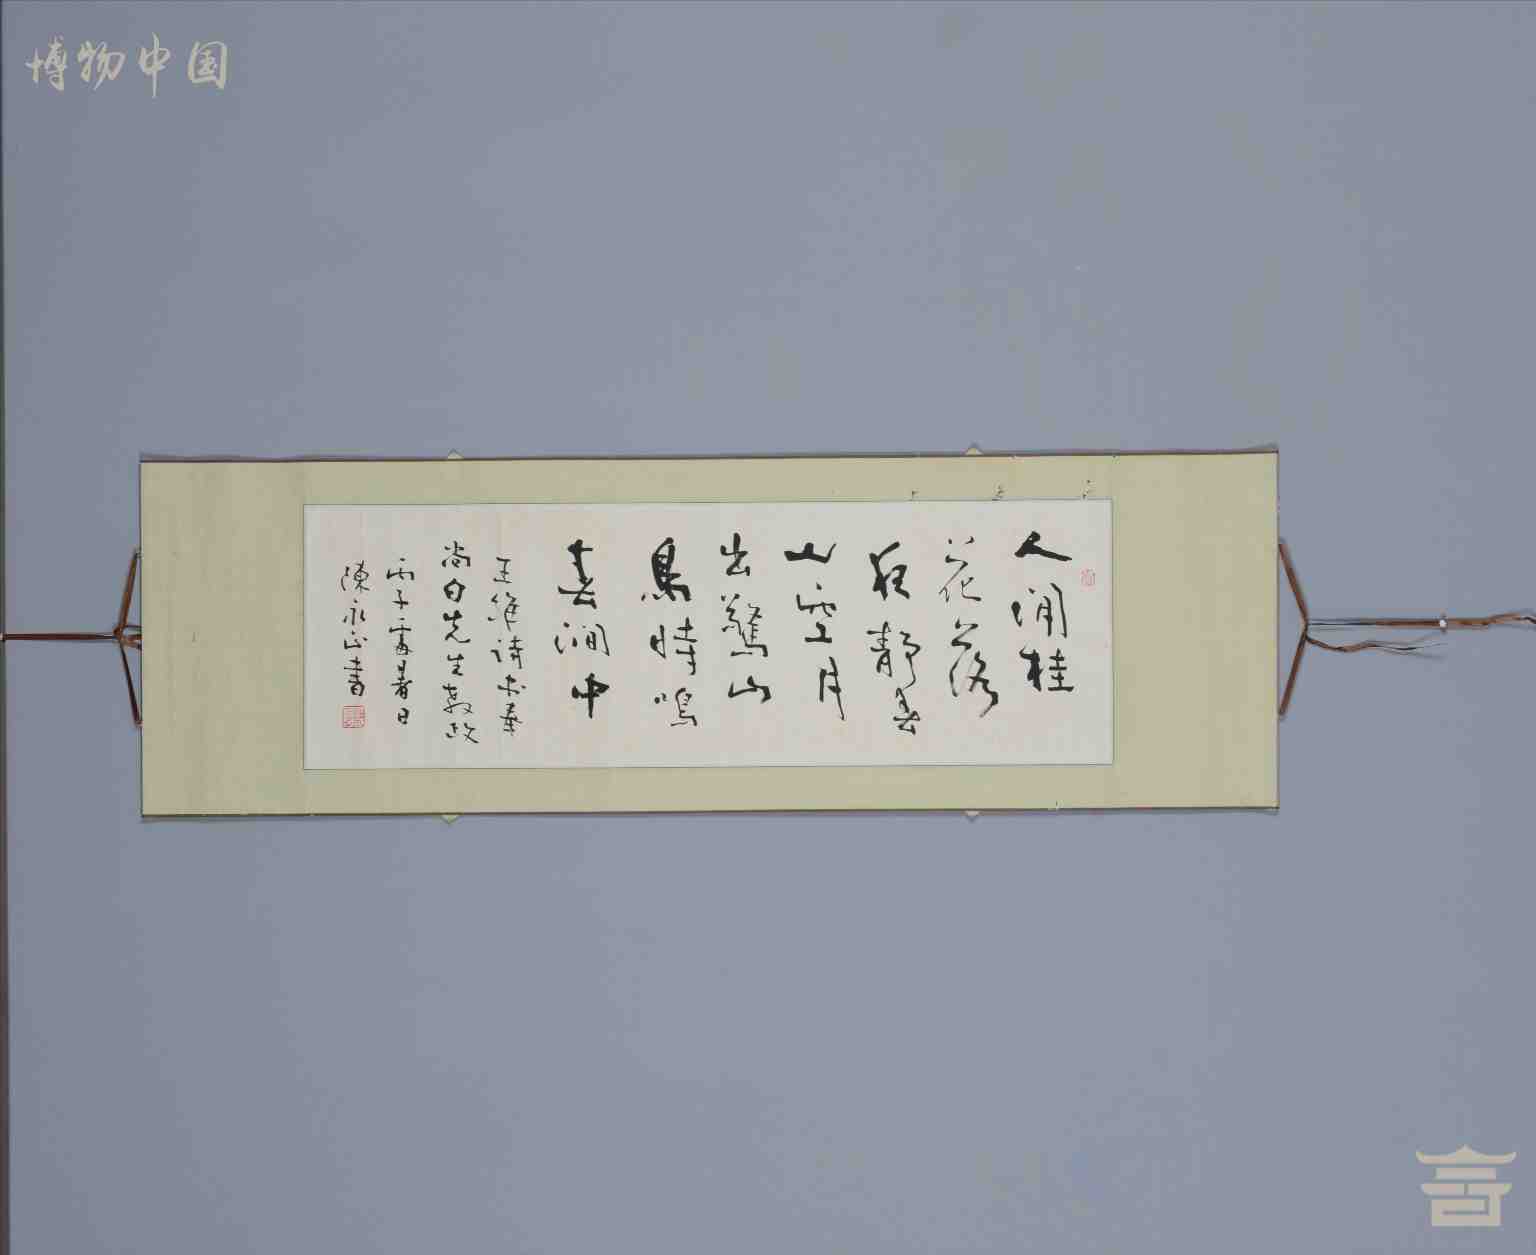 博物中国
人閒桂
花落
夜靜春
山空月
出驚山
鳥時鳴
春澗中
王維詩書奉
尚白先生教政
丙子處暑日
陳永正書